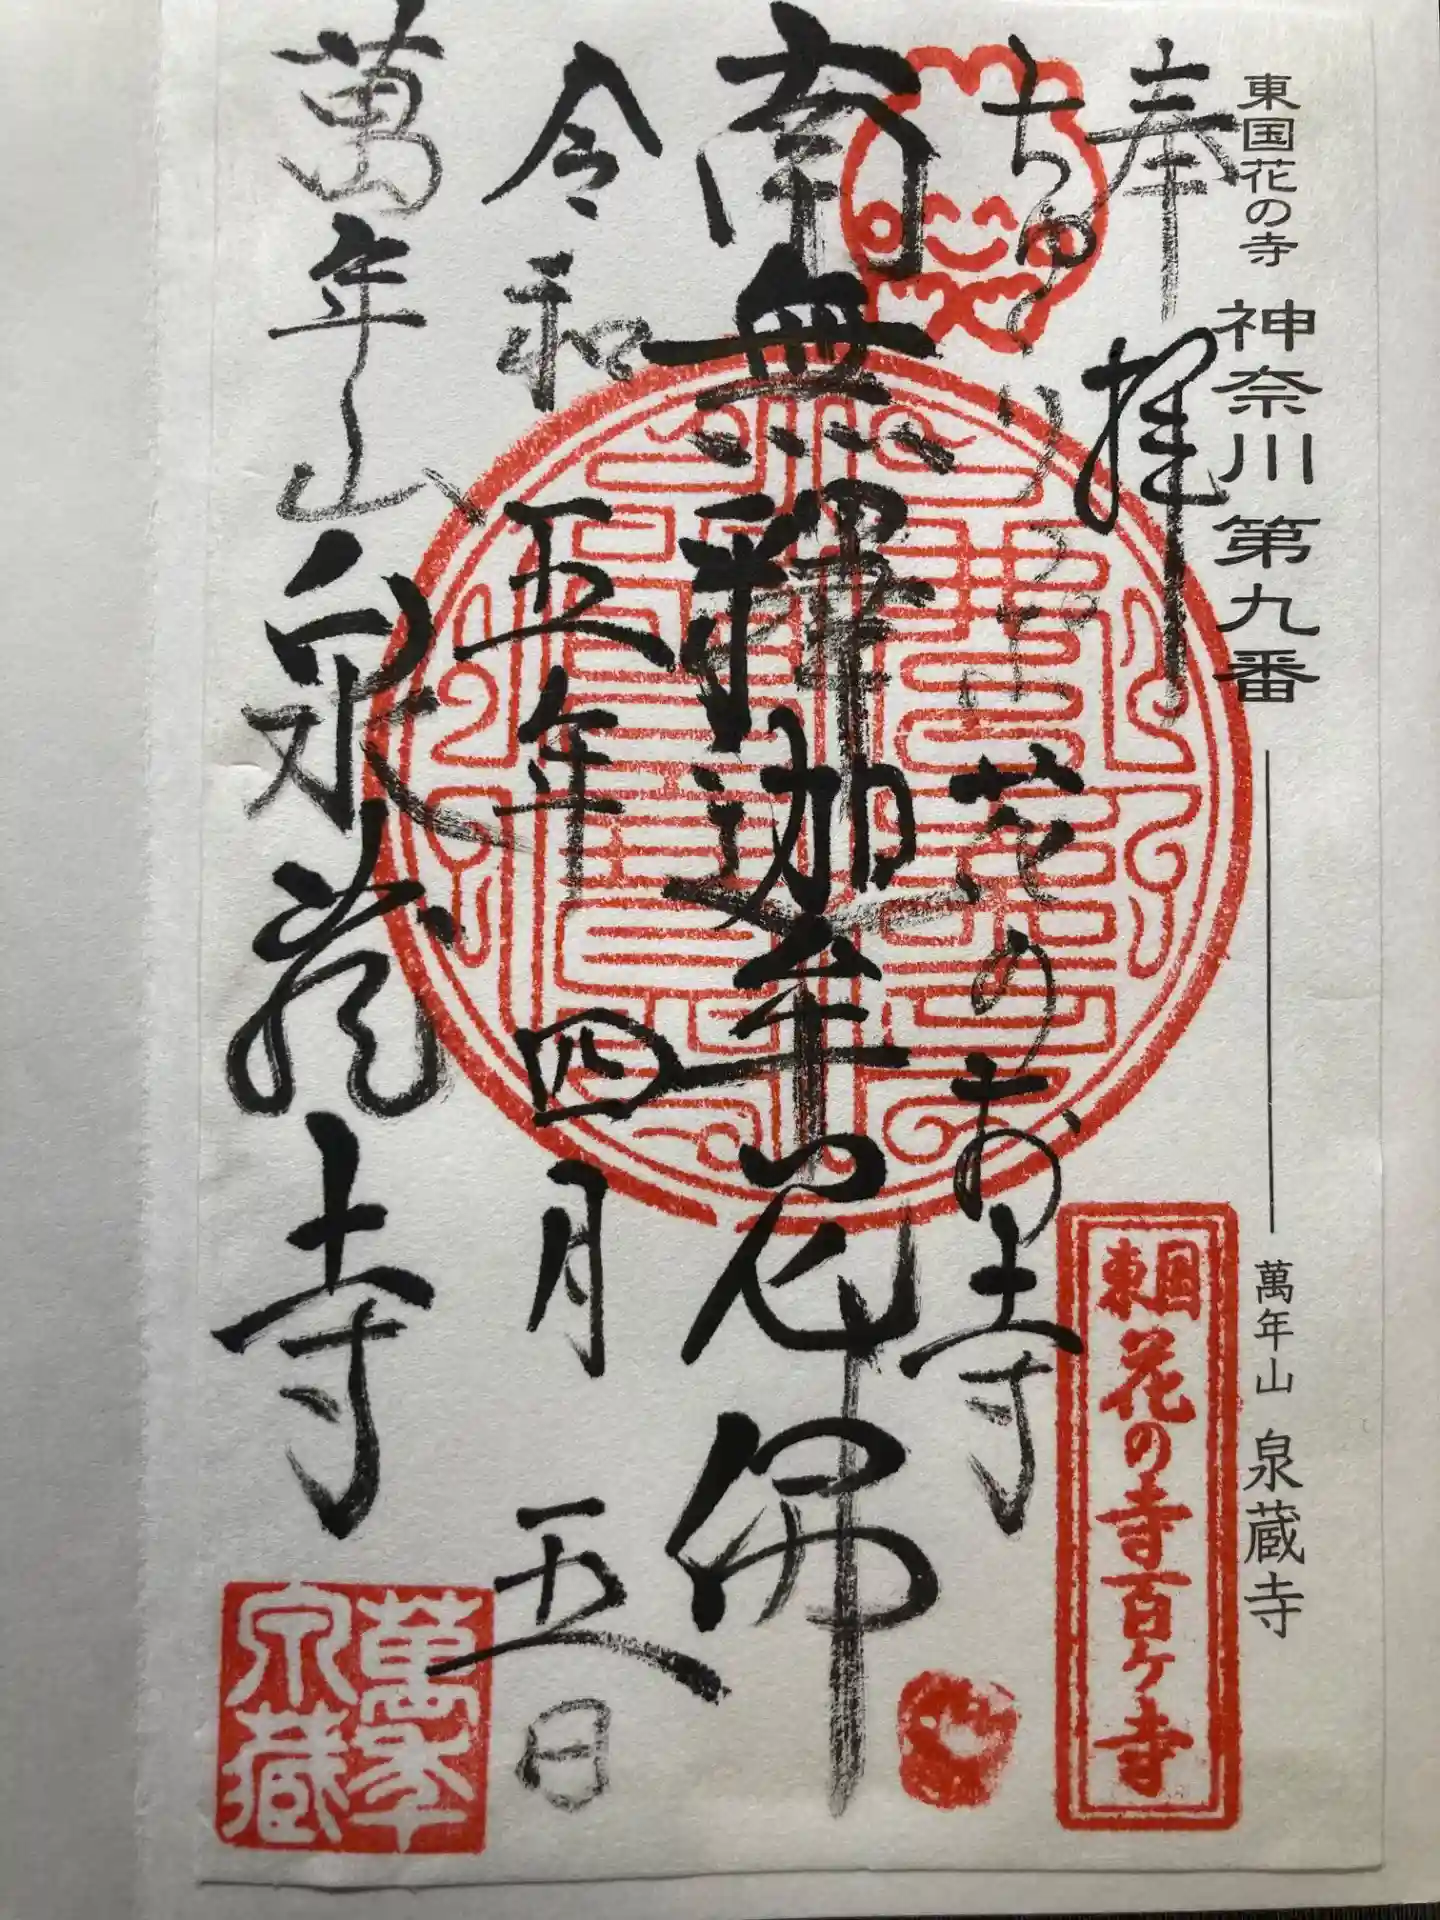 東国花の寺 神奈川第九番 萬年山 泉蔵寺
奉拝
花のお寺
南無釋迦牟尼佛
令和五年四月五日
萬年山泉蔵寺
東国花の寺百ケ寺
萬年
泉蔵